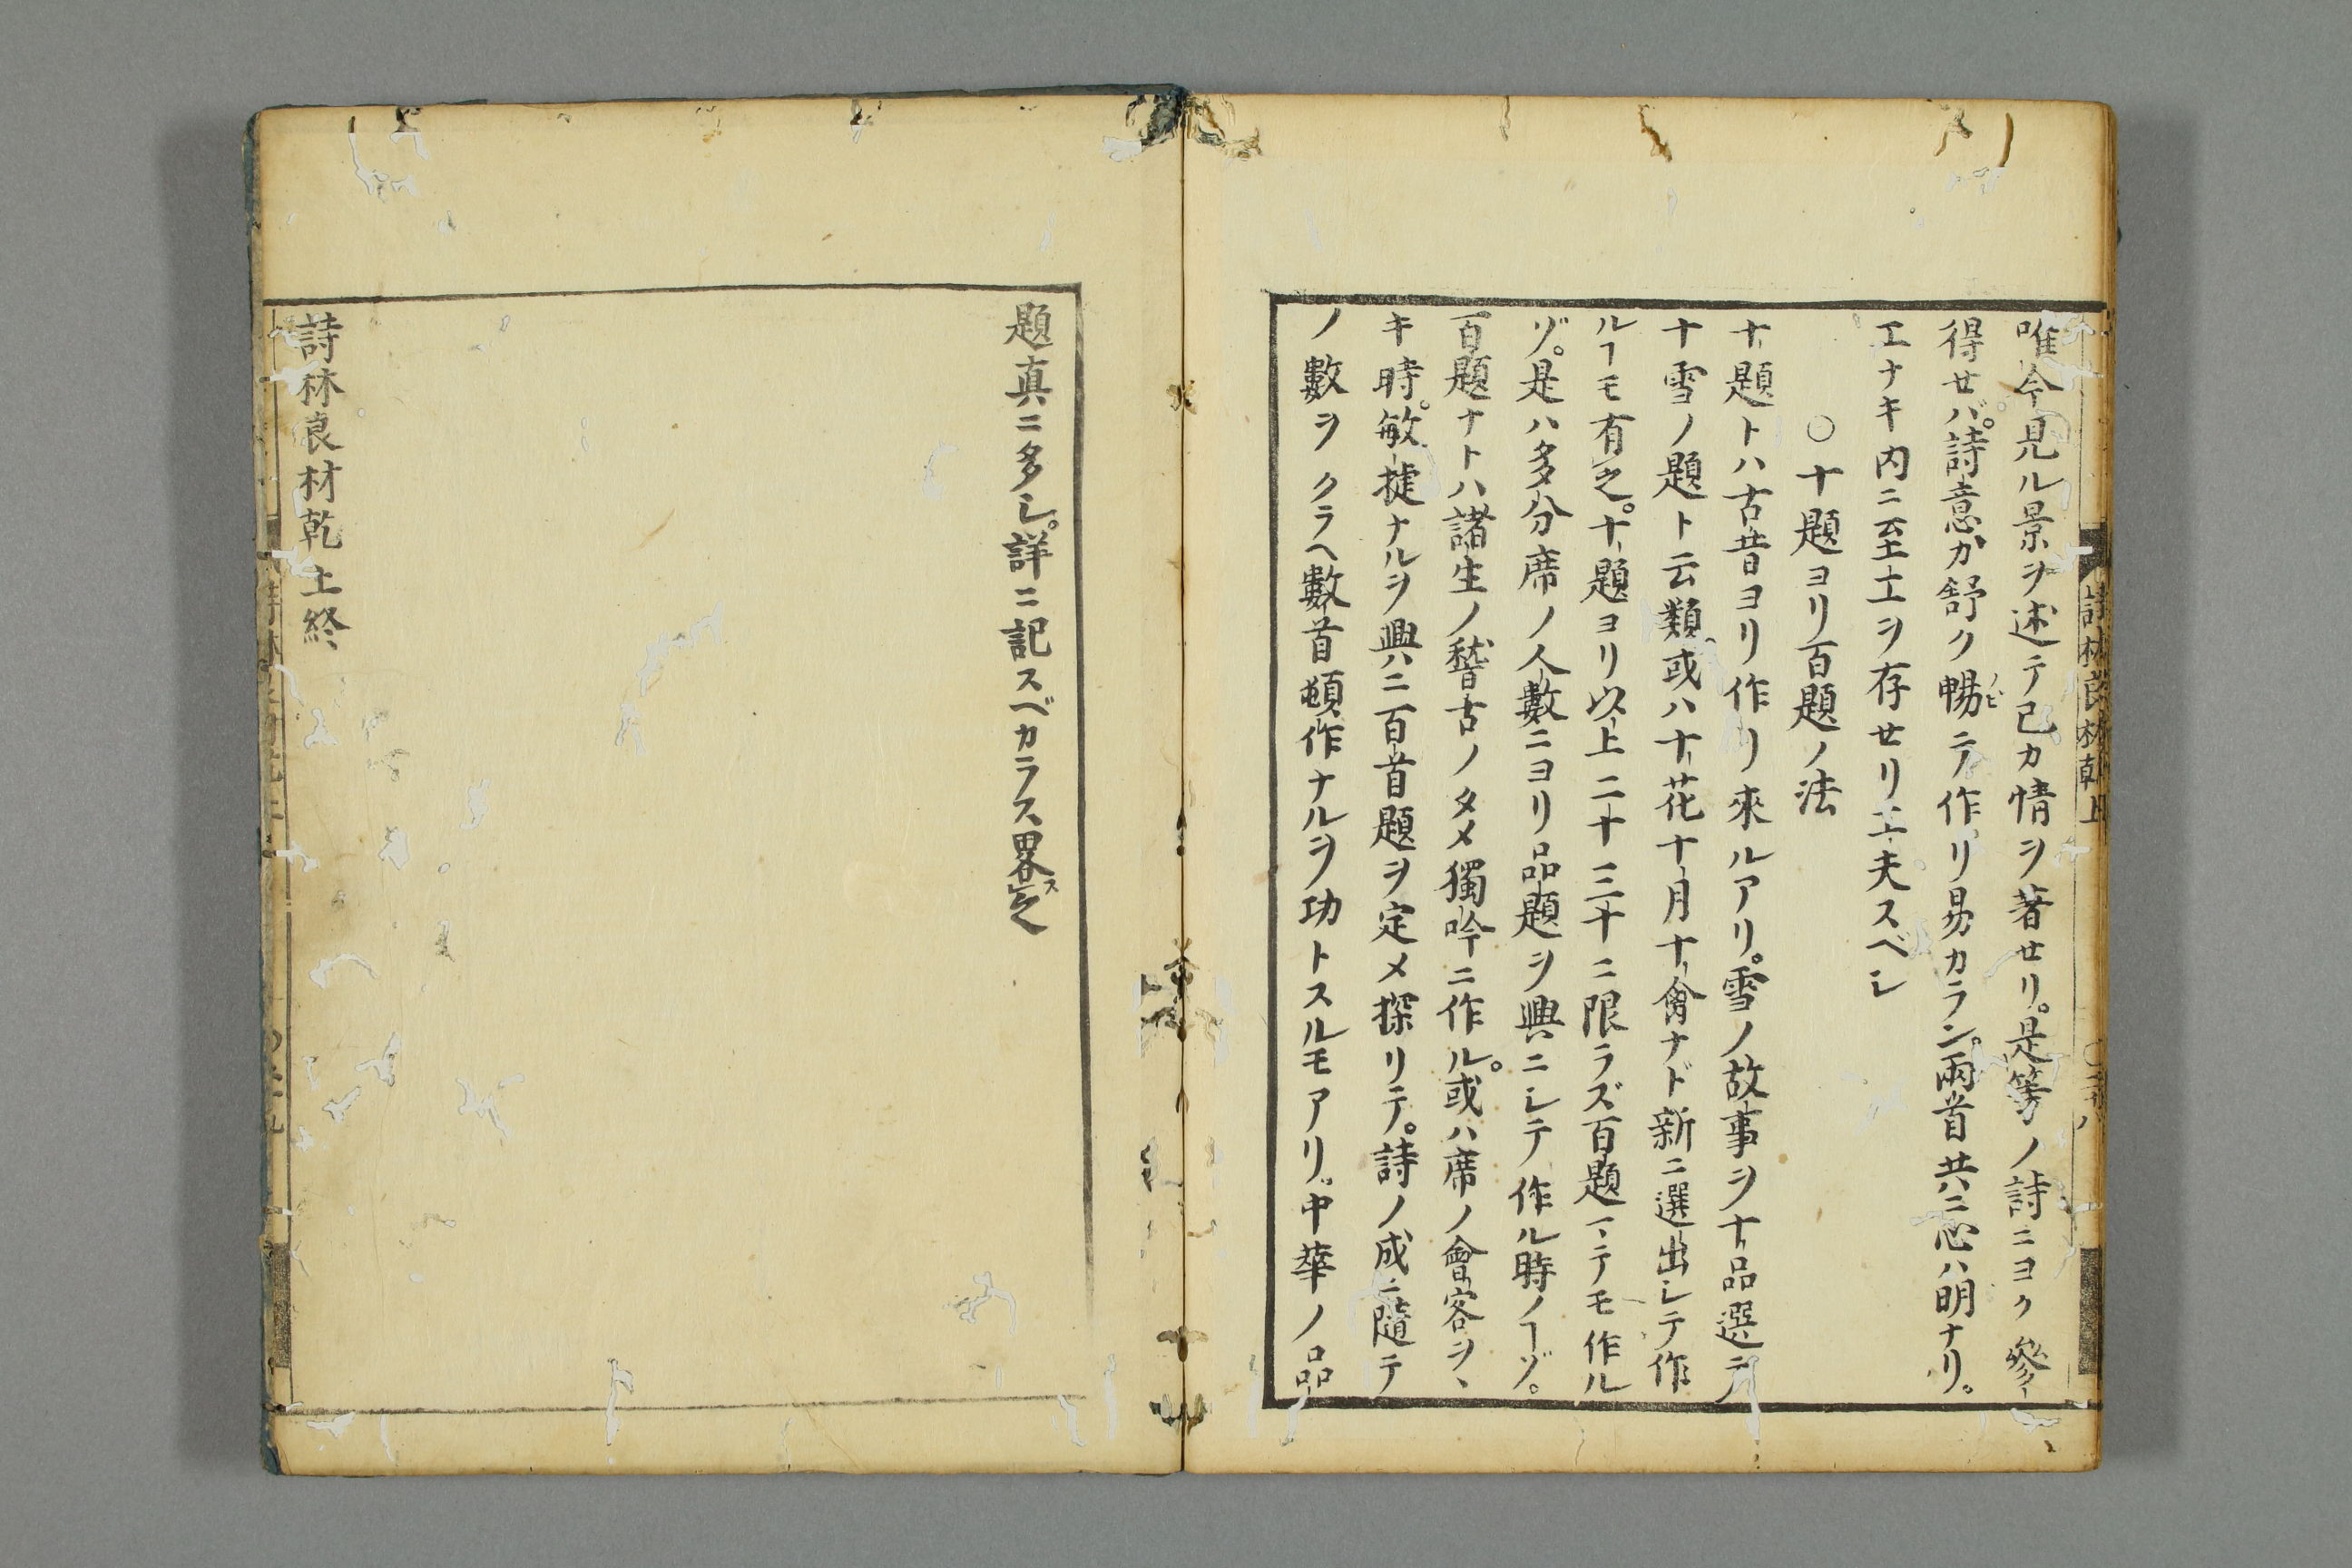 唯今見ル景ヲ述テ己カ情ヲ著せリ。是等ノ詩ニヨク參
得せバ。詩意カ舒ク暢ノビテ作リ易カラン。兩首共ニ忍ハ明ナリ。
エナキ内ニ至エヲ存せリ工夫スベシ
○十題ヨリ百題ノ法
十題トハ古昔ヨリ作リ來ルアリ。雪ノ故事ヲ十品選テ
十雪ノ題ト云類。或ハ十花十月十禽ナド新ニ選出シテ作
ルヿモ有之。十題ヨリ以上二十三十ニ限ラズ百題マテモ作ル
ヅ。是ハ多分席ノ人數ニヨリ品題ヲ興ニシテ作ル時ノヿヅ。
百題ナトハ諸生ノ稽古ノタメ獨吟ニ作ル。或ハ席ノ會客ヲヽ
キ時。敏捷ナルヲ興ニ百首題ヲ定メ探リテ。詩ノ成ニ隨テ
ノ數ヲクラヘ數首頓作ナルヲ功トスルモアリ。中華ノ品
詩林良材乾上
題真ニ多シ。詳ニ記スベカラス畧ス之
詩林良材乾上終